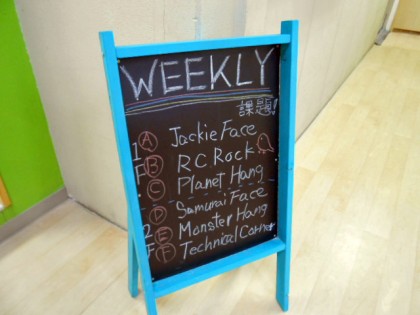 WEEKLY
課題!
1F
A Jackie Face
B RC Rock
C Planet Hang
2F
D Samurai Face
E Monster Hang
F Technical Corner